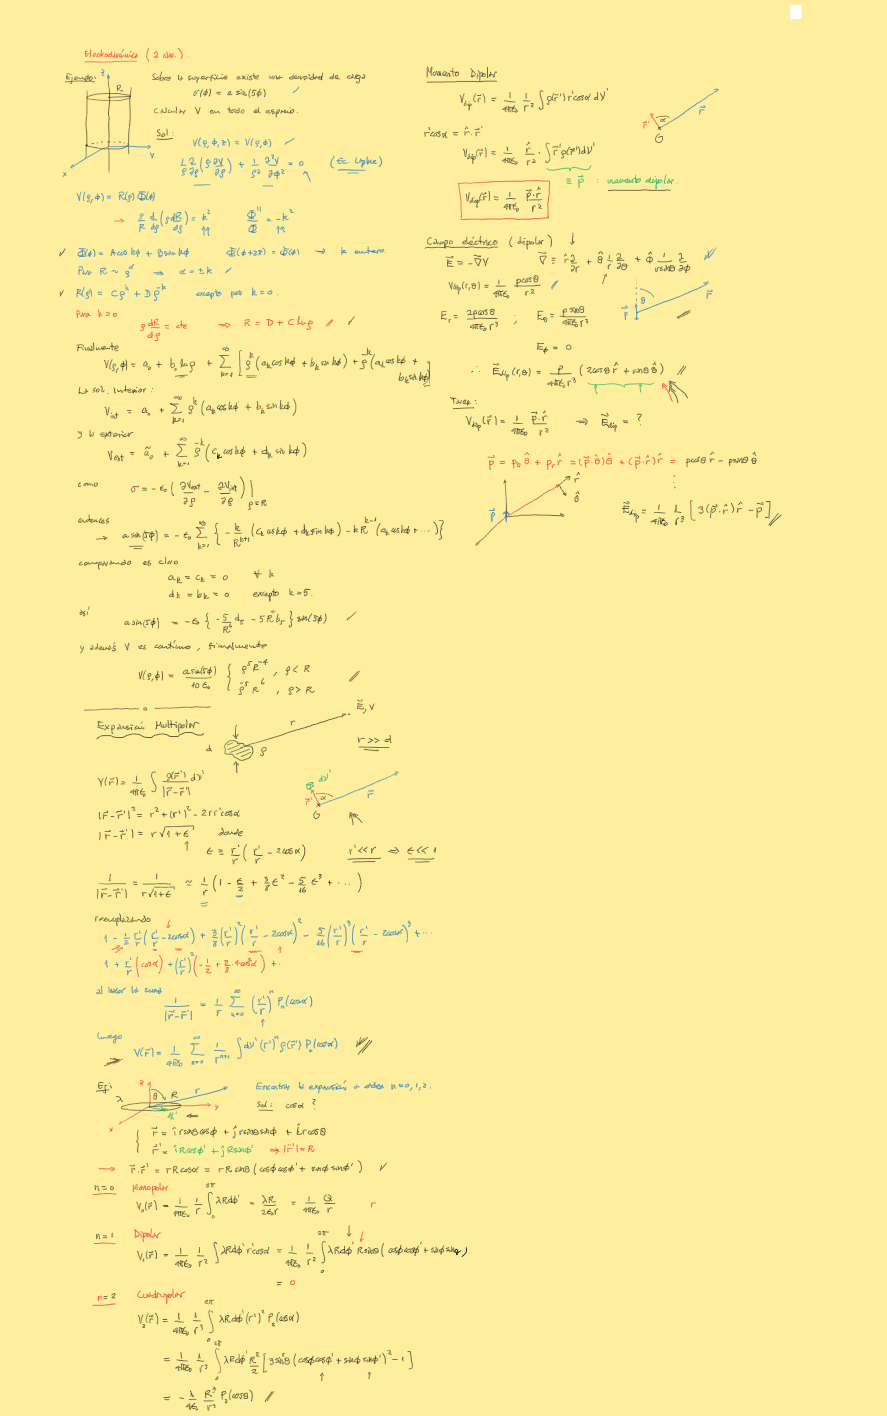 Electrodinámica (2 nov.).
Ejemplo: Sobre la superficie existe una densidad de carga
σ(φ) = a sin(5φ)
Calcular V en todo el espacio.
Sol:
V(ρ,φ,z) = V(ρ,φ)
1/ρ ∂/∂ρ (ρ ∂V/∂ρ) + 1/ρ² ∂²V/∂φ² = 0 (Ec. Laplace)
z R y x
V(ρ,φ) = R(ρ) Φ(φ)
→ ρ/R d/dρ (ρ dR/dρ) = k² Φ''/Φ = -k²
Φ(φ) = A cos kφ + B sin kφ Φ(φ+2π) = Φ(φ) → k entero.
Para R ~ ρ^α ⇒ α = ±k
R(ρ) = Cρ^k + Dρ^-k excepto para k = 0.
Para k = 0
ρ dR/dρ = cte ⇒ R = D + C ln ρ
Finalmente
V(ρ,φ) = a₀ + b₀ ln ρ + Σ_{k=1}^∞ [ρ^k (a_k cos kφ + b_k sin kφ) + ρ^-k (a_k cos kφ + b_k sin kφ)]
La sol. interior:
V_int = a₀ + Σ_{k=1}^∞ ρ^k (a_k cos kφ + b_k sin kφ)
y la exterior
V_ext = ã₀ + Σ_{k=1}^∞ ρ^-k (c_k cos kφ + d_k sin kφ)
como σ = -ε₀ (∂V_ext/∂ρ - ∂V_int/∂ρ)|_{ρ=R}
entonces
→ a sin(5φ) = -ε₀ Σ_{k=1}^∞ {-k/R^{k+1} (c_k cos kφ + d_k sin kφ) - kR^{k-1} (a_k cos kφ + ...)}
comparando es claro
a_k = c_k = 0 ∀ k
d_k = b_k = 0 excepto k=5.
así
a sin(5φ) = -ε₀ {-5/R⁶ d₅ - 5R⁴ b₅} sin(5φ)
y además V es continuo, finalmente
V(ρ,φ) = a sin(5φ)/10 ε₀ { ρ⁵ R⁻⁴ , ρ < R
ρ⁻⁵ R⁶ , ρ > R
Expansión Multipolar
d ρ r E, V
r >> d
V(r) = 1/4πε₀ ∫ ρ(r')/|r-r'| dV'
|r-r'|² = r² + (r')² - 2rr' cos α
|r-r'| = r√(1+ε) donde
r' α dV' r O
ε ≡ r'/r (r'/r - 2cos α) r' << r ⇒ ε << 1
1/|r-r'| = 1/(r√(1+ε)) ≃ 1/r (1 - ε/2 + 3/8 ε² - 5/16 ε³ + ...)
reemplazando
1 - 1/2 r'/r (r'/r - 2cos α) + 3/8 (r'/r)² (r'/r - 2cos α)² - 5/16 (r'/r)³ (r'/r - 2cos α)³ + ...
1 + r'/r (cos α) + (r'/r)² (-1/2 + 3/8 · 4cos²α) + ..
al hacer la suma
1/|r-r'| = 1/r Σ_{n=0}^∞ (r'/r)^n P_n(cos α)
Luego
V(r) = 1/4πε₀ Σ_{n=0}^∞ 1/r^{n+1} ∫ dV' (r')^n ρ(r') P_n(cos α)
Ej: Encontrar la expansión a orden n=0,1,2.
Sol: cos α ?
λ z θ R r y x r'
r = î r sinθ cosφ + ĵ r sinθ sinφ + k̂ r cosθ
r' = î R cosφ' + ĵ R sinφ' ⇒ |r'| = R
→ r·r' = rR cos α = rR sinθ (cosφ cosφ' + sinφ sinφ')
n=0 Monopolar
V₀(r) = 1/4πε₀ 1/r ∫₀^{2π} λR dφ' = λR/2ε₀r = 1/4πε₀ Q/r
n=1 Dipolar
V₁(r) = 1/4πε₀ 1/r² ∫ λR dφ' r' cos α = 1/4πε₀ 1/r² ∫₀^{2π} λR dφ' R sinθ (cosφ cosφ' + sinφ sinφ')
= 0
n=2 Cuadrupolar
V₂(r) = 1/4πε₀ 1/r³ ∫₀^{2π} λR dφ' (r')² P₂(cos α)
= 1/4πε₀ 1/r³ ∫₀^{2π} λR dφ' R²/2 [3 sin²θ (cosφ cosφ' + sinφ sinφ')² - 1]
= -λ/4ε₀ R³/r³ P₂(cosθ)
Momento Dipolar
V_dip(r) = 1/4πε₀ 1/r² ∫ ρ(r') r' cos α dV'
r' α r O
r' cos α = r̂ · r'
V_dip(r) = 1/4πε₀ r̂/r² · ∫ r' ρ(r') dV'
≡ p : momento dipolar.
V_dip(r) = 1/4πε₀ p·r̂/r²
Campo eléctrico (dipolar)
E = -∇V ∇ = r̂ ∂/∂r + θ̂ 1/r ∂/∂θ + φ̂ 1/(r sinθ) ∂/∂φ
V_dip(r,θ) = 1/4πε₀ p cosθ/r²
p θ r
E_r = 2p cosθ/4πε₀r³ ; E_θ = p sinθ/4πε₀r³
E_φ = 0
∴ E_dip(r,θ) = p/4πε₀r³ (2cosθ r̂ + sinθ θ̂)
Tarea:
V_dip(r) = 1/4πε₀ p·r̂/r² ⇒ E_dip = ?
p = p_θ θ̂ + p_r r̂ = (p·θ̂)θ̂ + (p·r̂)r̂ = p cosθ r̂ - p sinθ θ̂
p r̂ θ̂
E_dip = 1/4πε₀ 1/r³ [3(p·r̂)r̂ - p]